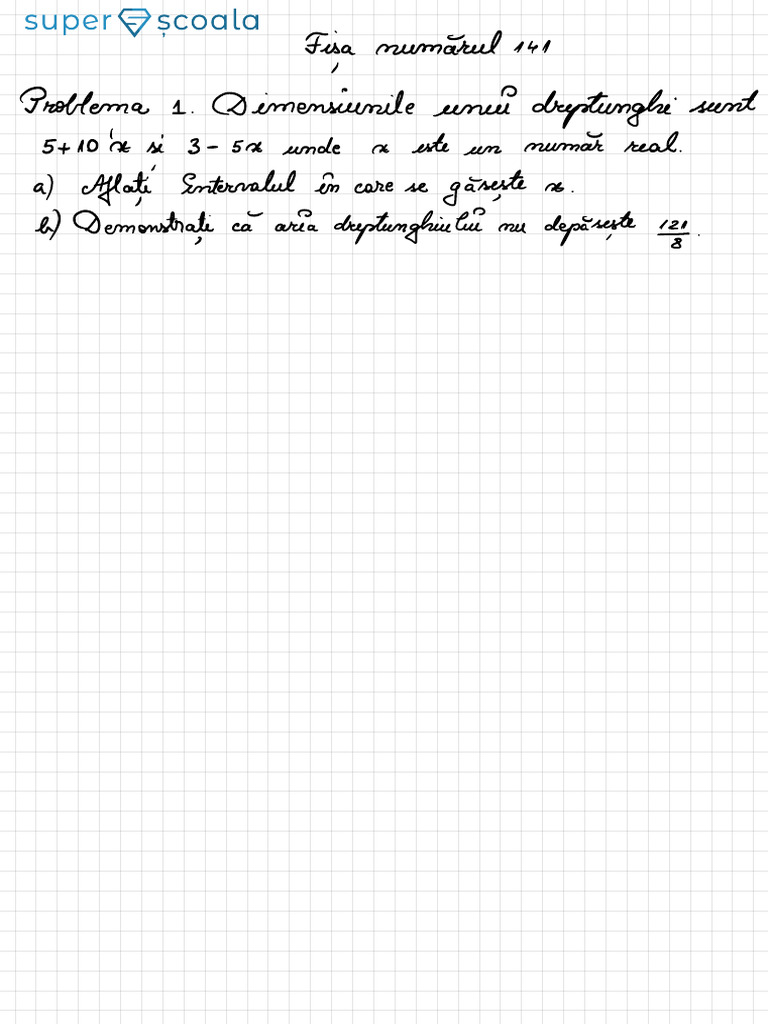 super școala
Fișa numărul 141
Problema 1. Dimensiunile unui dreptunghi sunt
5+10x și 3-5x unde x este un număr real.
a) Aflați intervalul în care se găsește x.
b) Demonstrați că aria dreptunghiului nu depășește 121/8.